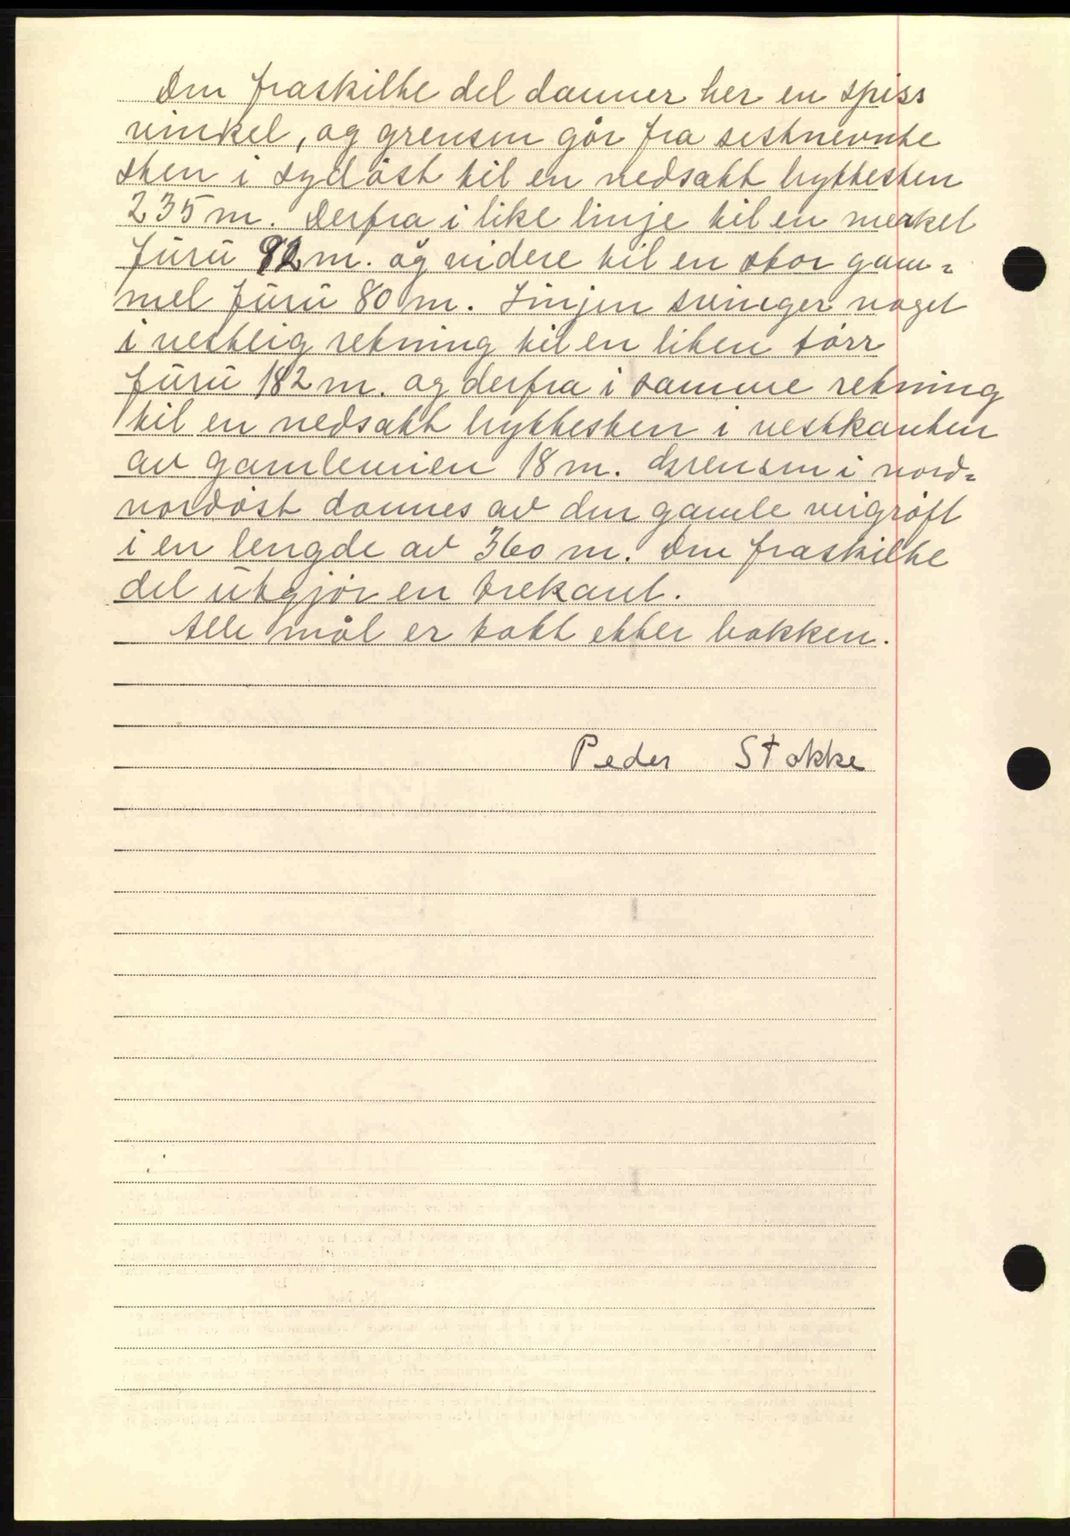 Den fraskilte del danner her en spiss
vinkel, og grensen går fra sistnevnte
sten i sydöst til en nedsatt bryttesten
235 m. Derfra i like linje til en merket
furu 92 m. og videre til en stor gam-
mel furu 80 m. Linjen svinger noget
i vestlig retning til en liten törr
furu 182 m. og derfra i samme retning
til en nedsatt bryttesten i vestkanten
av gamleveien 18 m. Grensen i nord-
nordöst dannes av den gamle veigröft
i en lengde av 360 m. Den fraskilte
del utgjör en trekant.
Alle mål er tatt etter bakken.
Peder Stokke